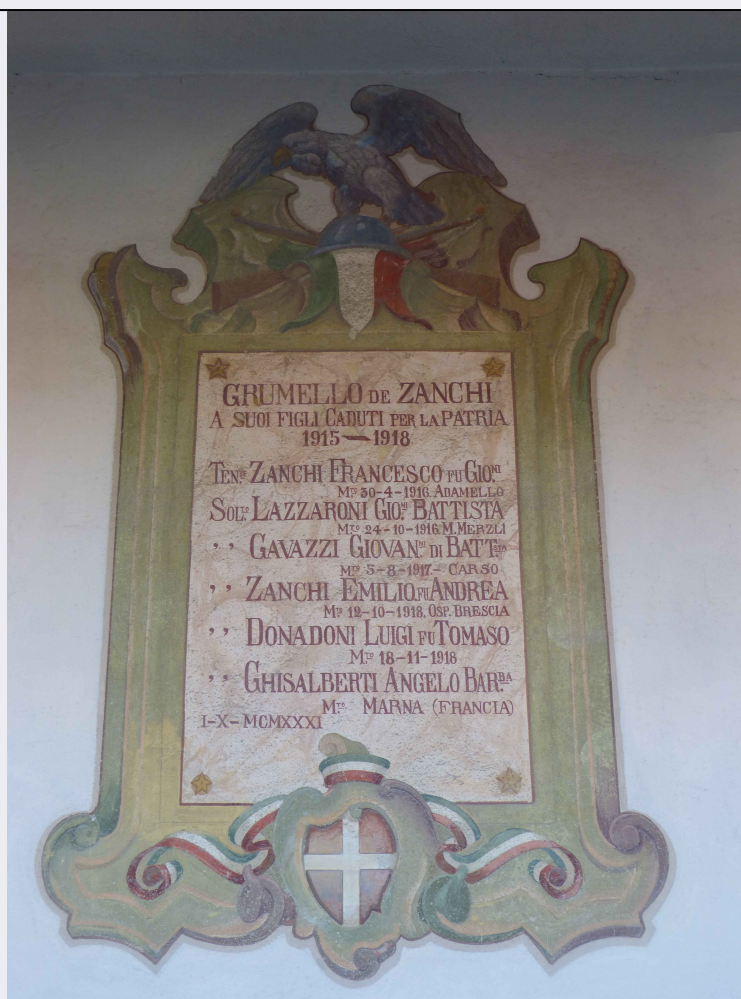 GRUMELLO DE ZANCHI
A SUOI FIGLI CADUTI PER LA PATRIA
1915 — 1918
TEN.TE ZANCHI FRANCESCO FU GIO.NI
M.TO 30-4-1916. ADAMELLO
SOL.TO LAZZARONI GIO.NI BATTISTA
M.TO 24-10-1916 M. MERZLI
,, GAVAZZI GIOVAN.NI DI BATT.STA
M.TO 5-8-1917.- CARSO
,, ZANCHI EMILIO FU ANDREA
M.TO 12-10-1918. OSP. BRESCIA
,, DONADONI LUIGI FU TOMASO
M.TO 18-11-1918
,, GHISALBERTI ANGELO BAR.BA
M.TO. MARNA (FRANCIA)
I-X-MCMXXXI